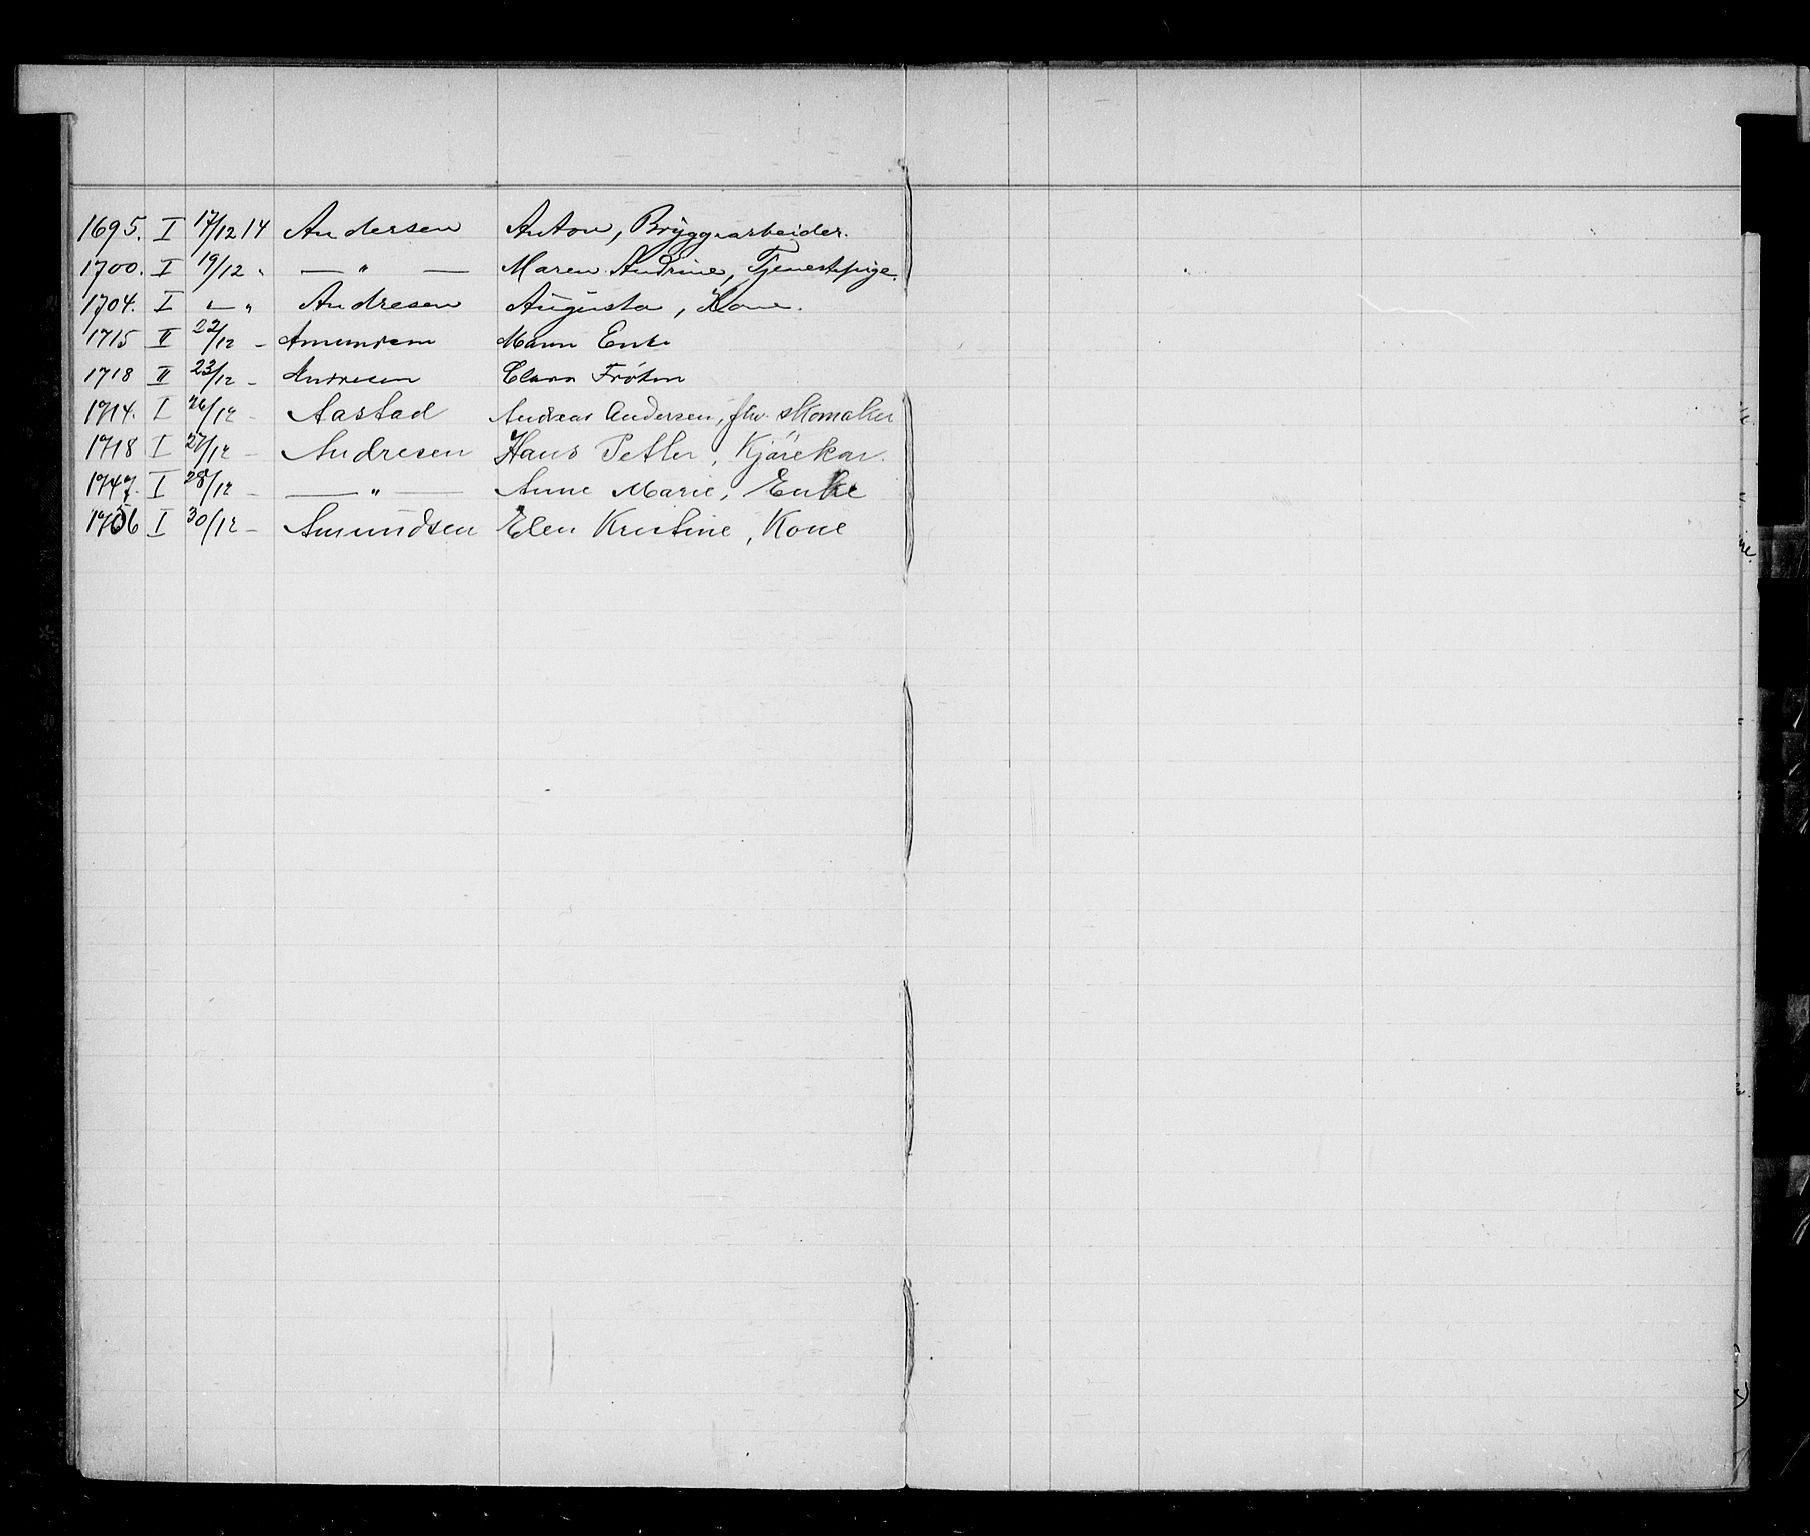 1695. I 17/12 14 Andersen Anton, Bryggearbeider.
1700. I 19/12 „ — „ — Maren Andrine, Tjenestepige.
1704. I — „ Andresen Augusta, Kone.
1715 II 22/12 – Amundsen Maren Enke
1718 II 23/12 – Andresen Clara Frøken
1714. I 26/12 – Aastad Andreas Andersen, fhv. skomaker
1718 I 27/12 – Andresen Hans Petter, Kjørekar.
1747. I 28/12 – — „ — Anne Marie, Enke
1756 I 30/12 – Amundsen Elen Kristine, Kone